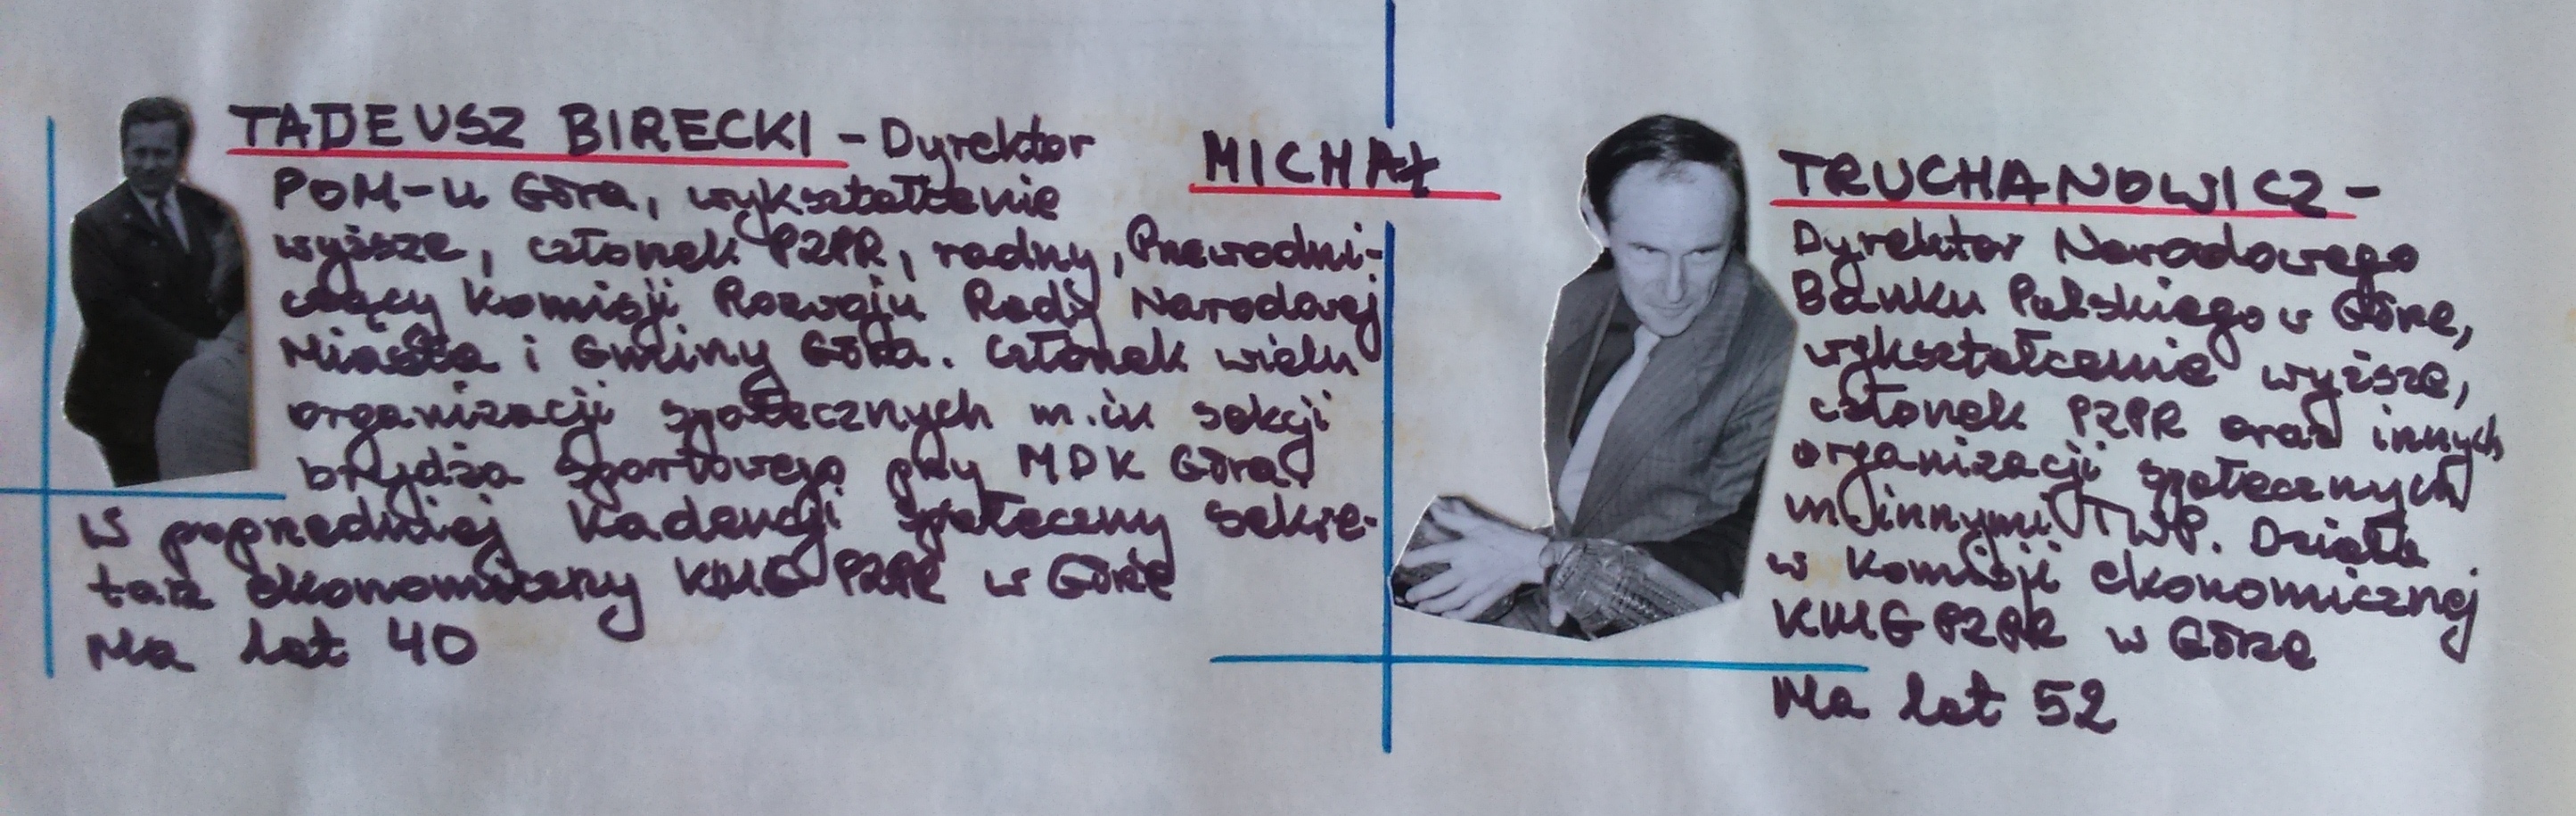 TADEUSZ BIRECKI - Dyrektor
POM-u Góra, wykształcenie
wyższe, członek PZPR, radny, Przewodni-
czący Komisji Rozwoju Rady Narodowej
Miasta i Gminy Góra. Członek wielu
organizacji społecznych m.in sekcji
brydża sportowego przy MDK Góra
W poprzedniej kadencji społeczny sekre-
tarz ekonomiczny KMG PZPR w Górze
Ma lat 40
MICHAŁ TRUCHANOWICZ -
Dyrektor Narodowego
Banku Polskiego w Górze,
wykształcenie wyższe,
członek PZPR oraz innych
organizacji społecznych
m innymi TWP. Działa
w Komisji ekonomicznej
KMG PZPR w Górze
Ma lat 52